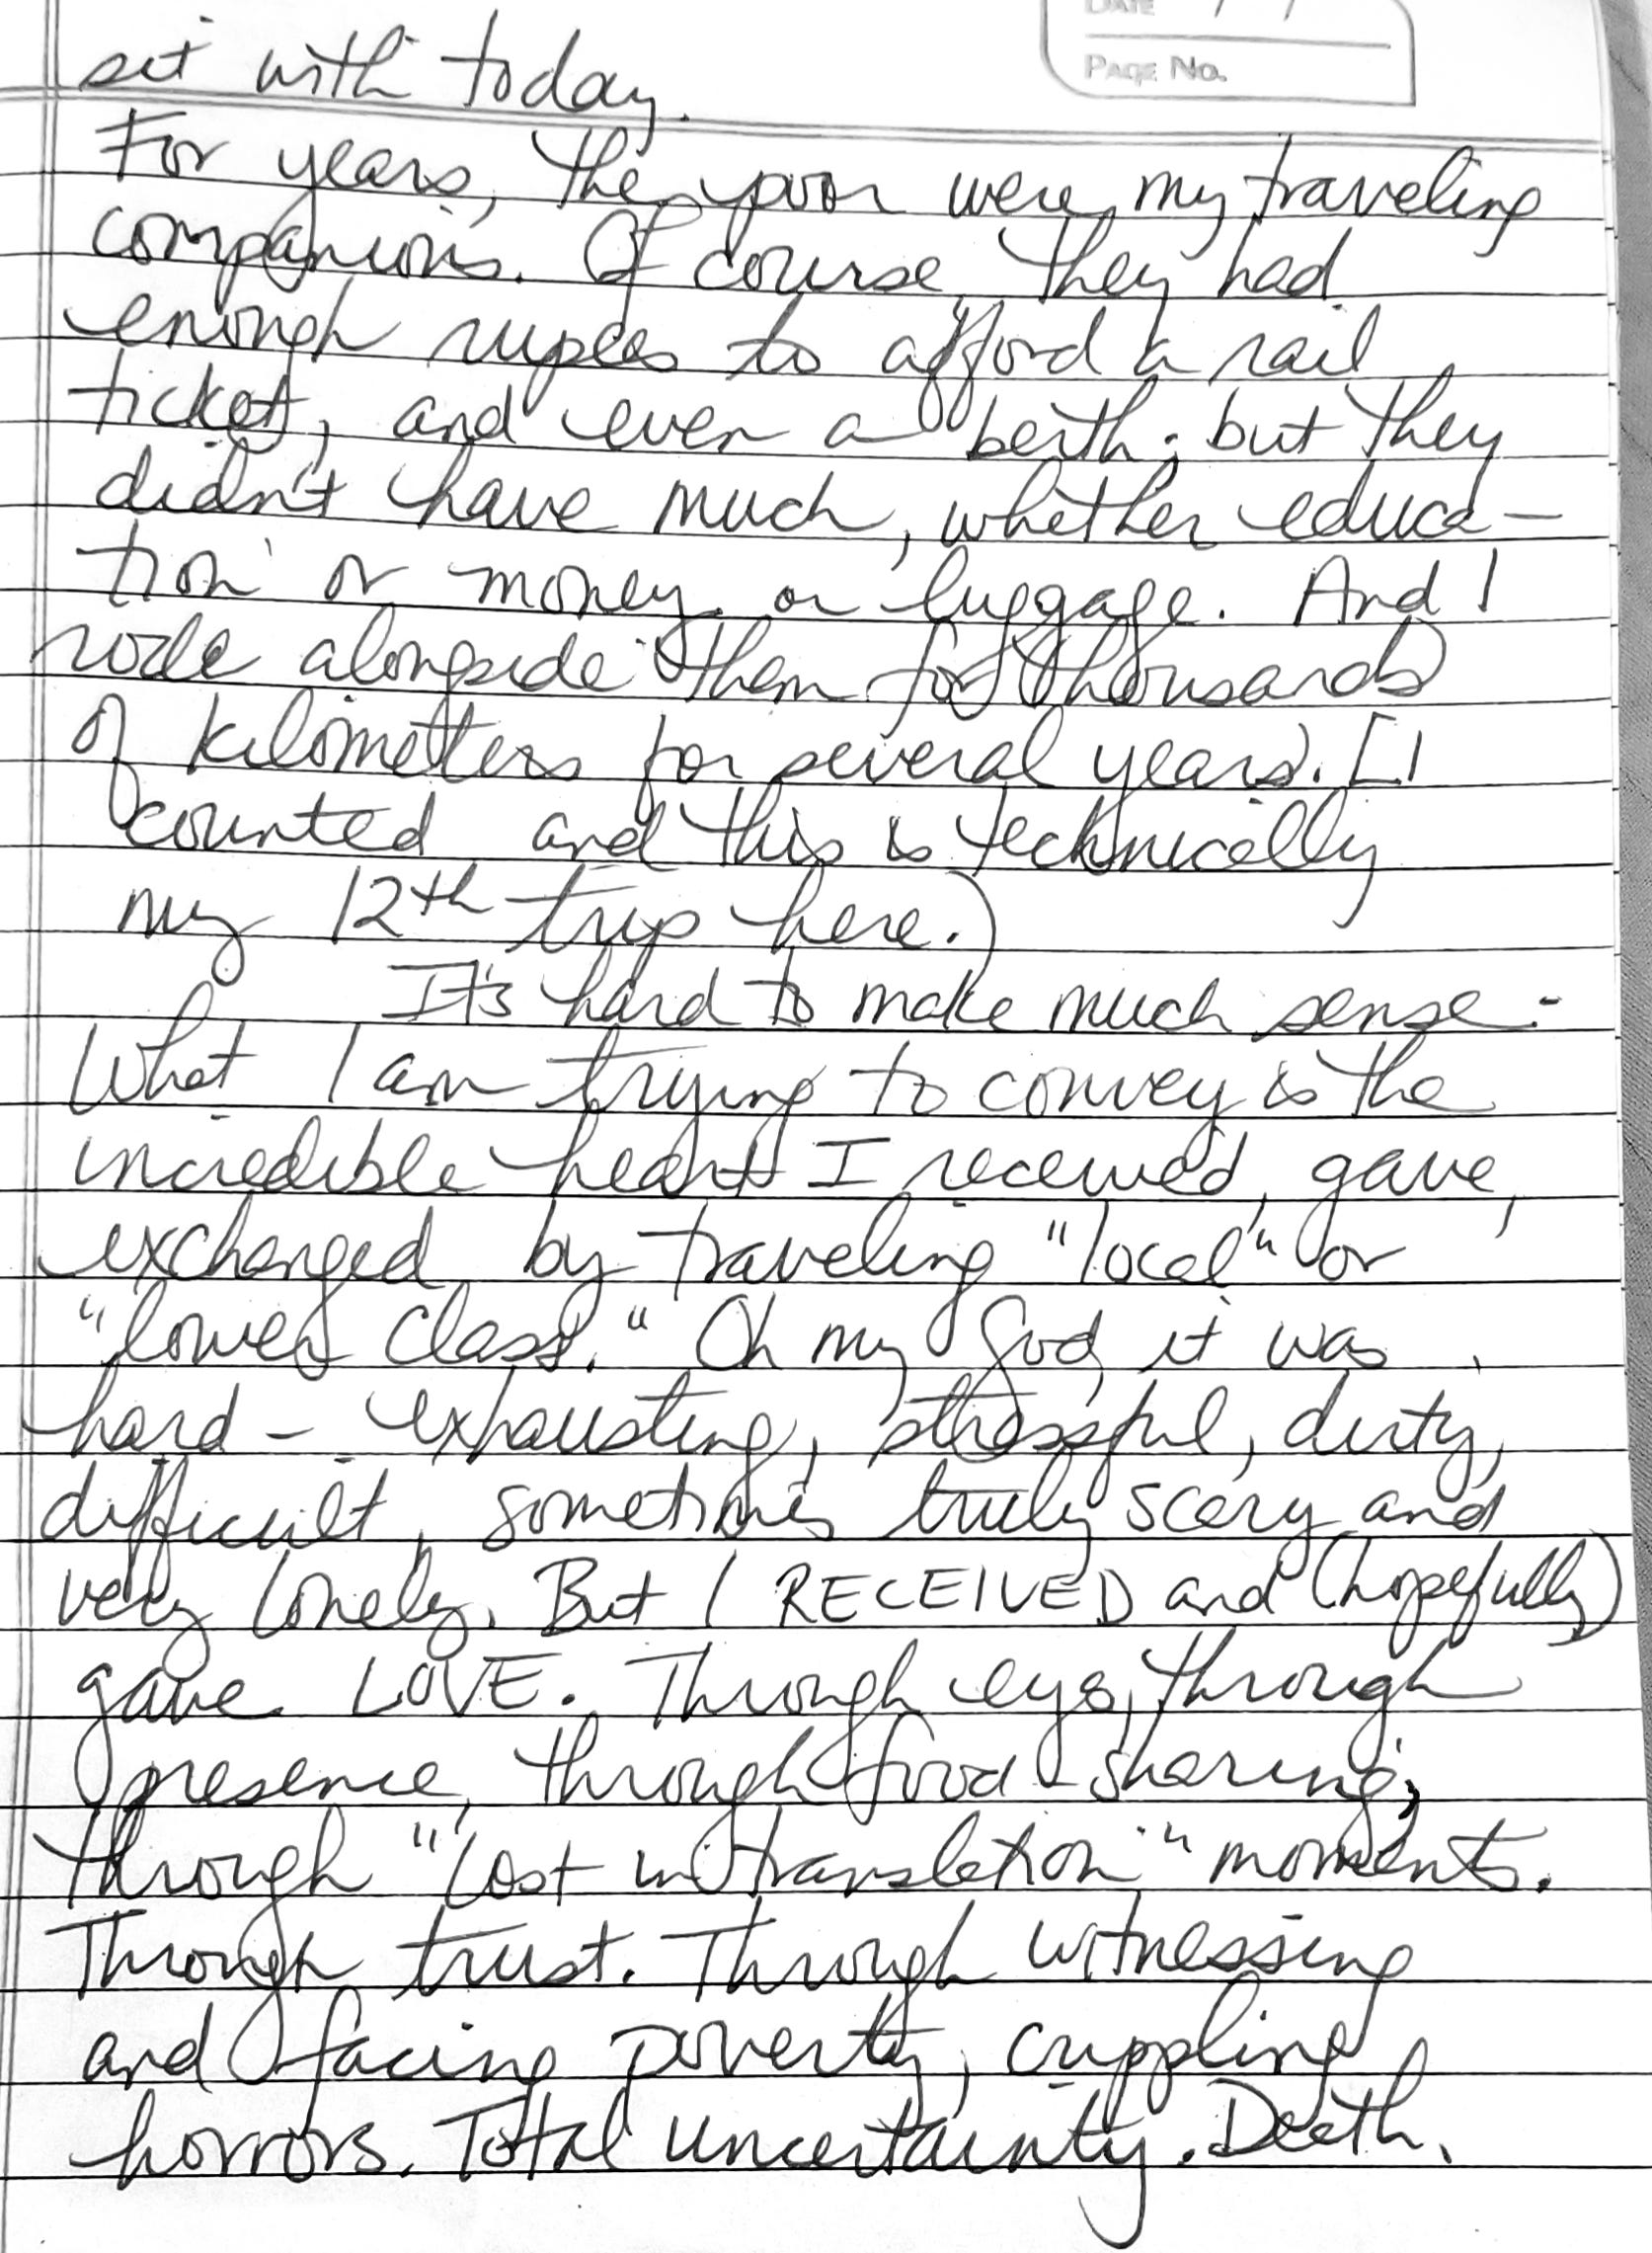 DATE / /
PAGE No.
sit with today.
For years, the poor were my traveling
companions. Of course they had
enough rupees to afford a rail
ticket, and even a berth; but they
didn't have much, whether educa-
tion or money or luggage. And I
rode alongside them for thousands
of kilometers for several years. [I
counted and this is technically
my 12th trip here.)
It's hard to make much sense -
What I am trying to convey is the
incredible heart I received, gave,
exchanged by traveling "local" or
"lower class." Oh my God, it was
hard - exhausting, stressful, dirty,
difficult, sometimes truly scary and
very lonely. But I RECEIVED and (hopefully)
gave LOVE. Through eyes, through
presence, through food sharing;
through "lost in translation" moments.
Through trust. Through witnessing
and facing poverty, crippling
horrors. Total uncertainty. Death.